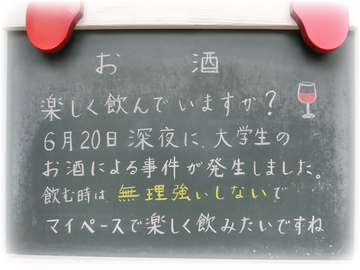 お酒
楽しく飲んでいますか？
6月20日深夜に、大学生の
お酒による事件が発生しました。
飲む時は、無理強いしないで
マイペースで楽しく飲みたいですね